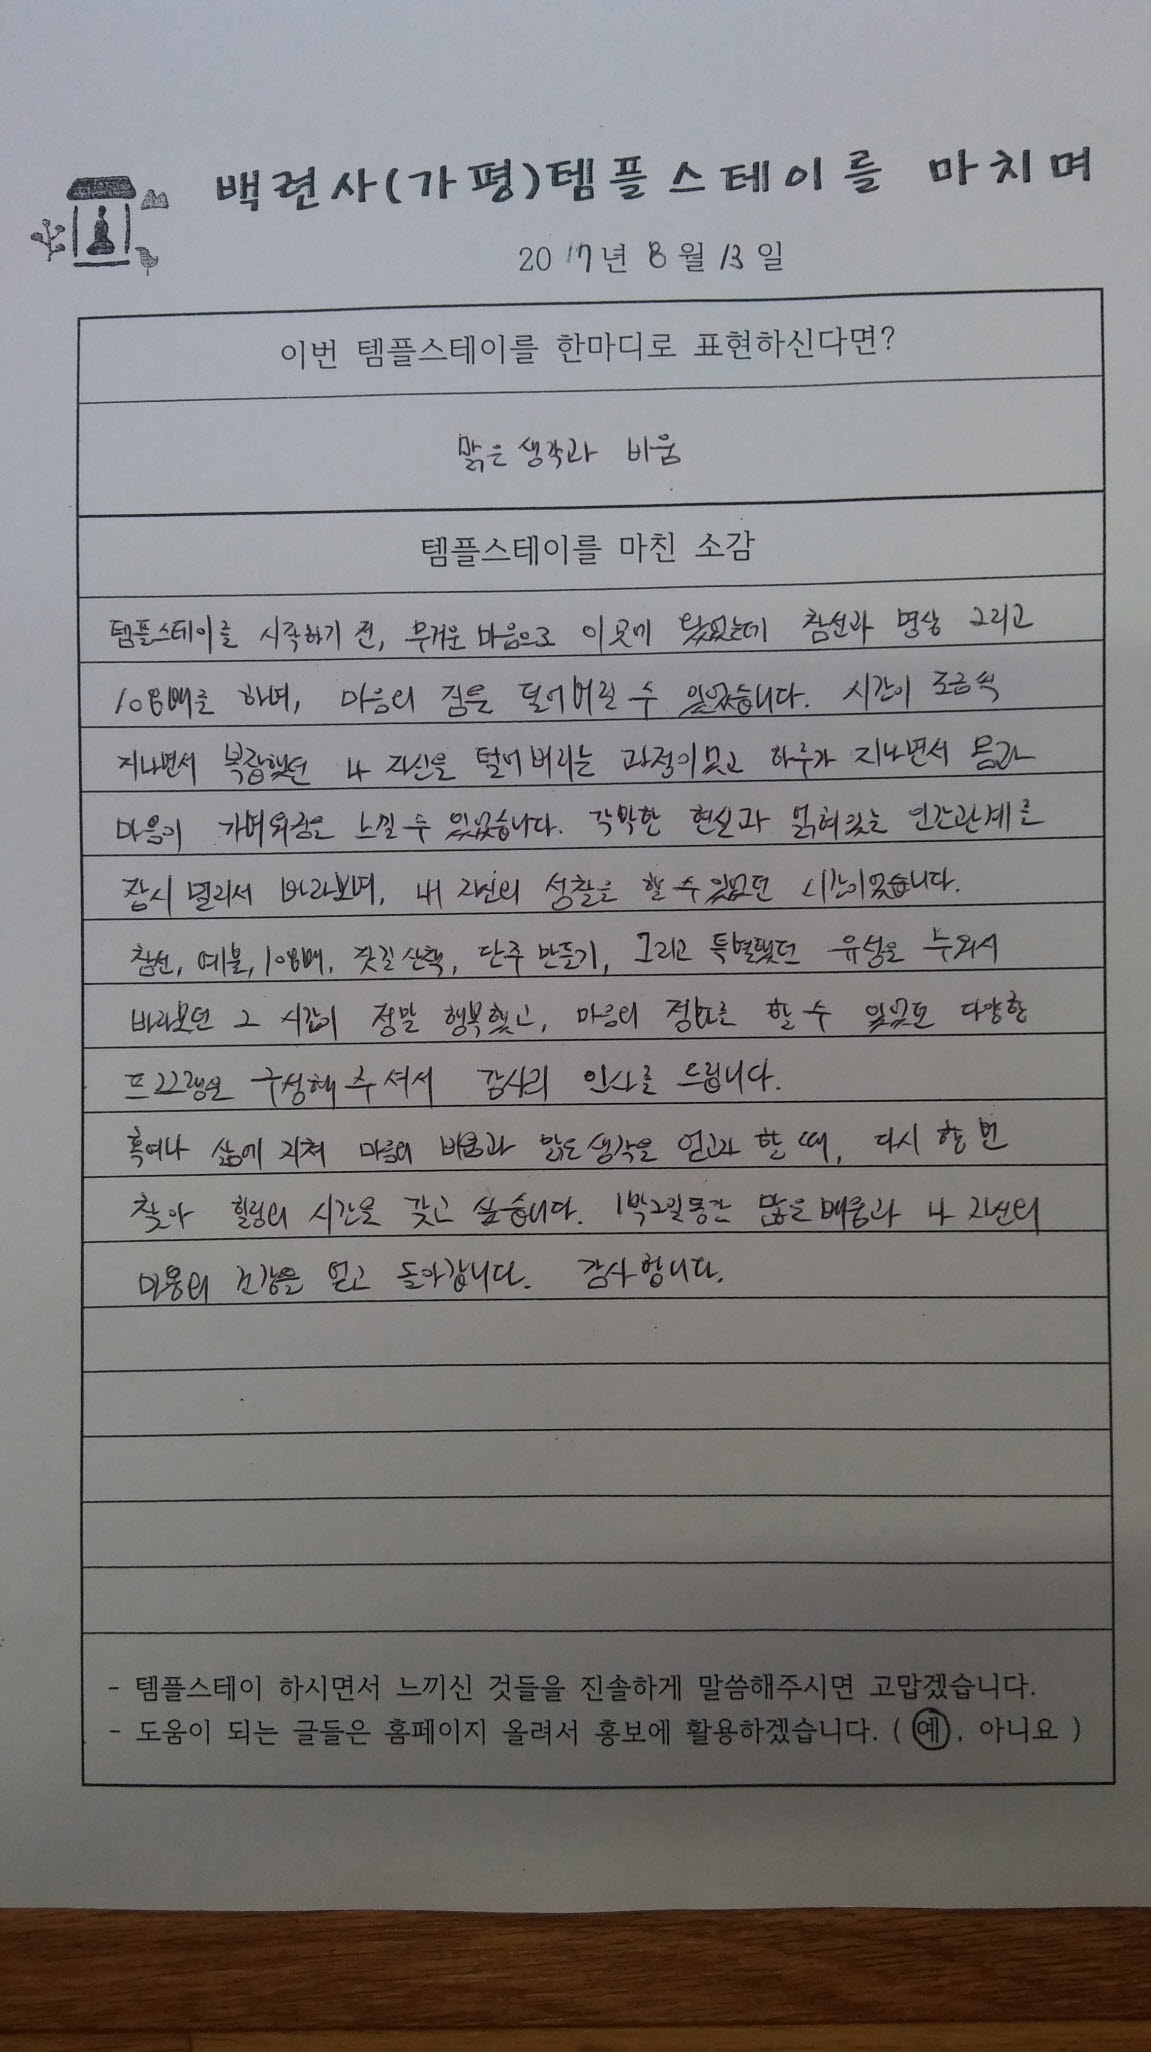 백련사(가평)템플스테이를 마치며
2017년 8월 13일
이번 템플스테이를 한마디로 표현하신다면?
맑은 생각과 비움
템플스테이를 마친 소감
템플스테이를 시작하기 전, 무거운 마음으로 이곳에 왔었는데 참선과 명상 그리고
108배를 하며, 마음의 짐을 덜어버릴 수 있었습니다. 시간이 조금씩
지나면서 복잡했던 나 자신을 털어버리는 과정이었고 하루가 지나면서 몸과
마음이 가벼워짐을 느낄 수 있었습니다. 각박한 현실과 얽혀있는 인간관계를
잠시 멀리서 바라보며, 내 자신의 성찰을 할 수 있었던 시간이었습니다.
참선, 예불, 108배, 잣길 산책, 단주 만들기, 그리고 특별했던 유성을 누워서
바라보던 그 시간이 정말 행복했고, 마음의 정화를 할 수 있었도 다양한
프로그램을 구성해 주셔서 감사의 인사를 드립니다.
혹여나 삶에 지쳐 마음의 비움과 맑은 생각을 얻고자 할 때, 다시 한 번
찾아 힐링의 시간을 갖고 싶습니다. 1박2일동안 많은 배움과 나 자신의
마음의 건강을 얻고 돌아갑니다. 감사합니다.
- 템플스테이 하시면서 느끼신 것들을 진솔하게 말씀해주시면 고맙겠습니다.
- 도움이 되는 글들은 홈페이지 올려서 홍보에 활용하겠습니다. ( 예, 아니요 )